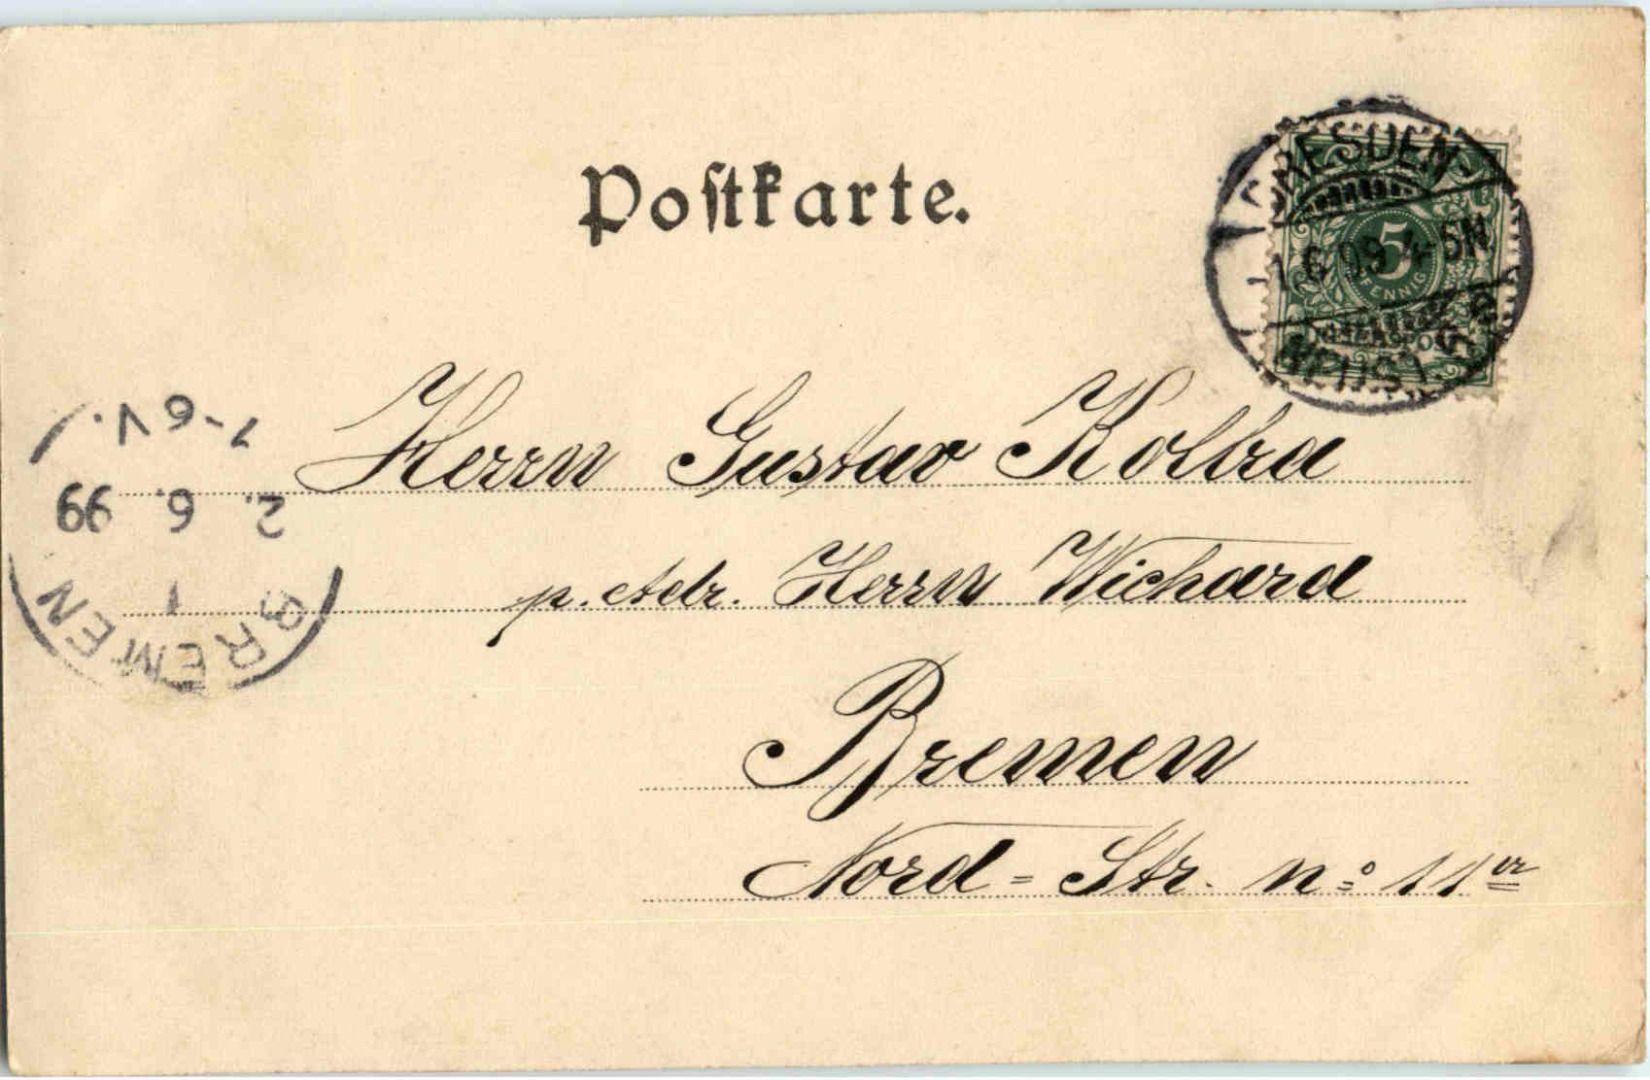 Postkarte.
DRESDEN-
1.6.99 4-5N.
NEUST.
5
PFENNIG
REICHSPOST
7-6V.
2. 6. 99
1
BREMEN
Herrn Gustav
p. Adr. Herrn Wichard
Bremen
Nord=Str. No 11